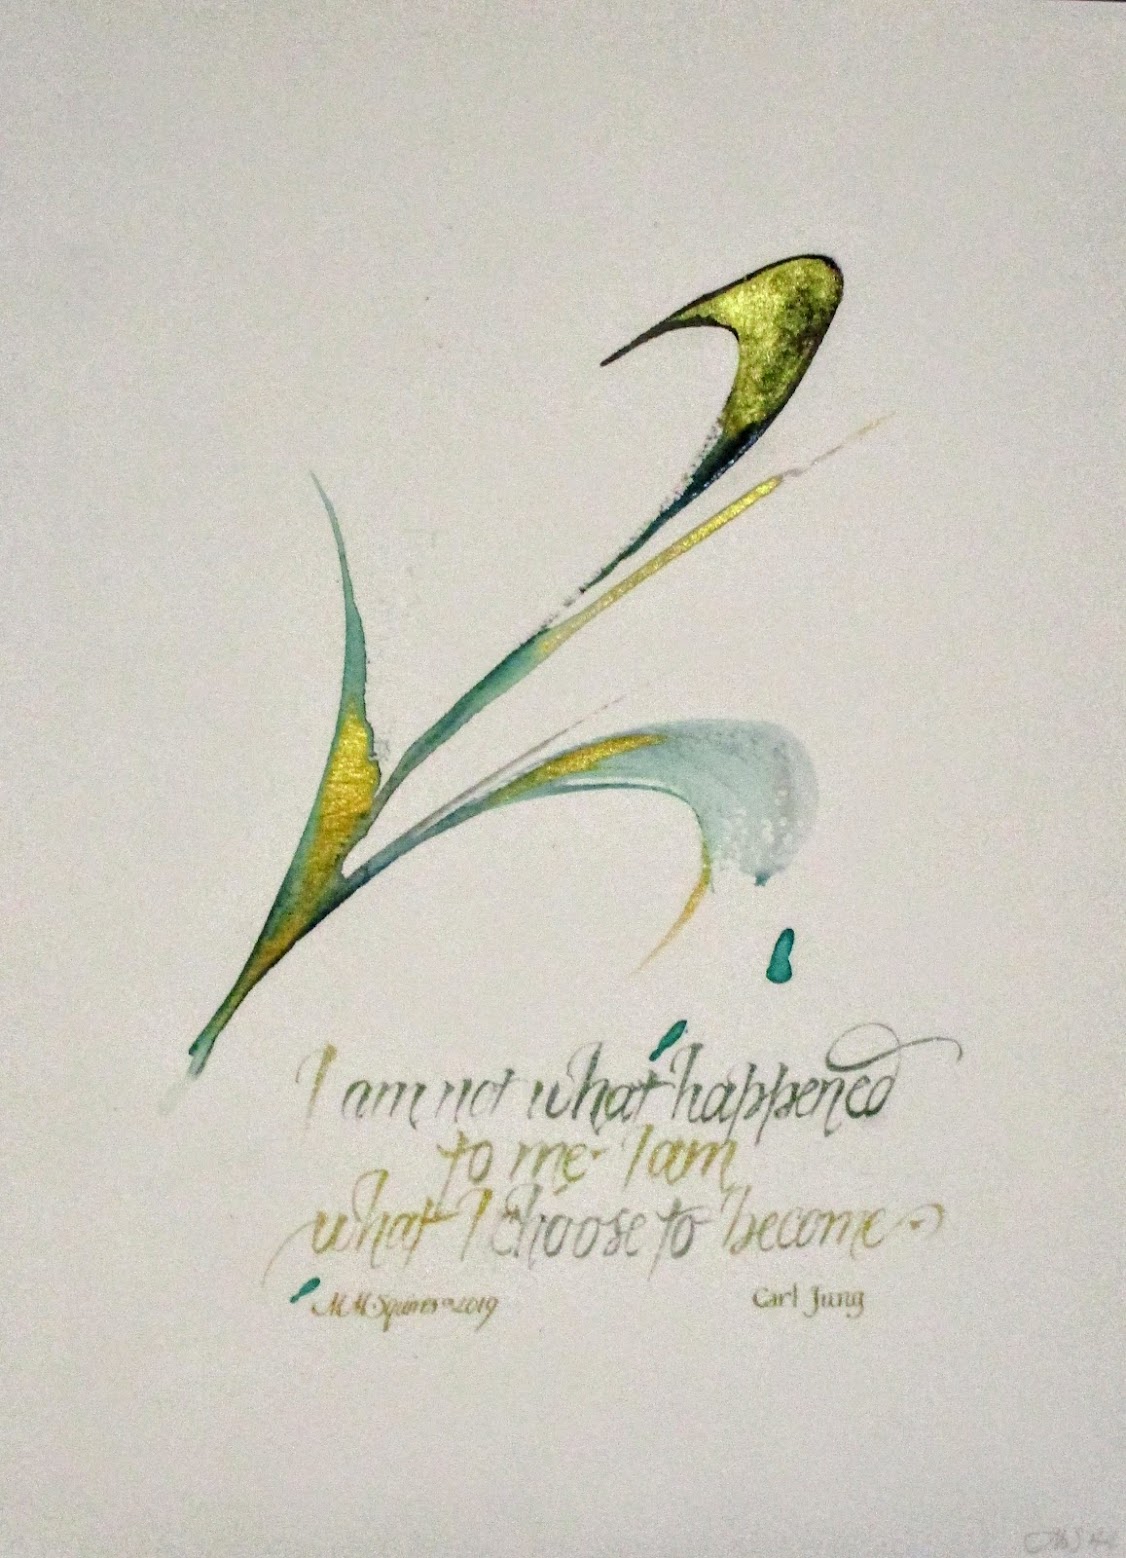 I am not what happened
to me - I am
what I choose to become
MM Squires 2019
Carl Jung